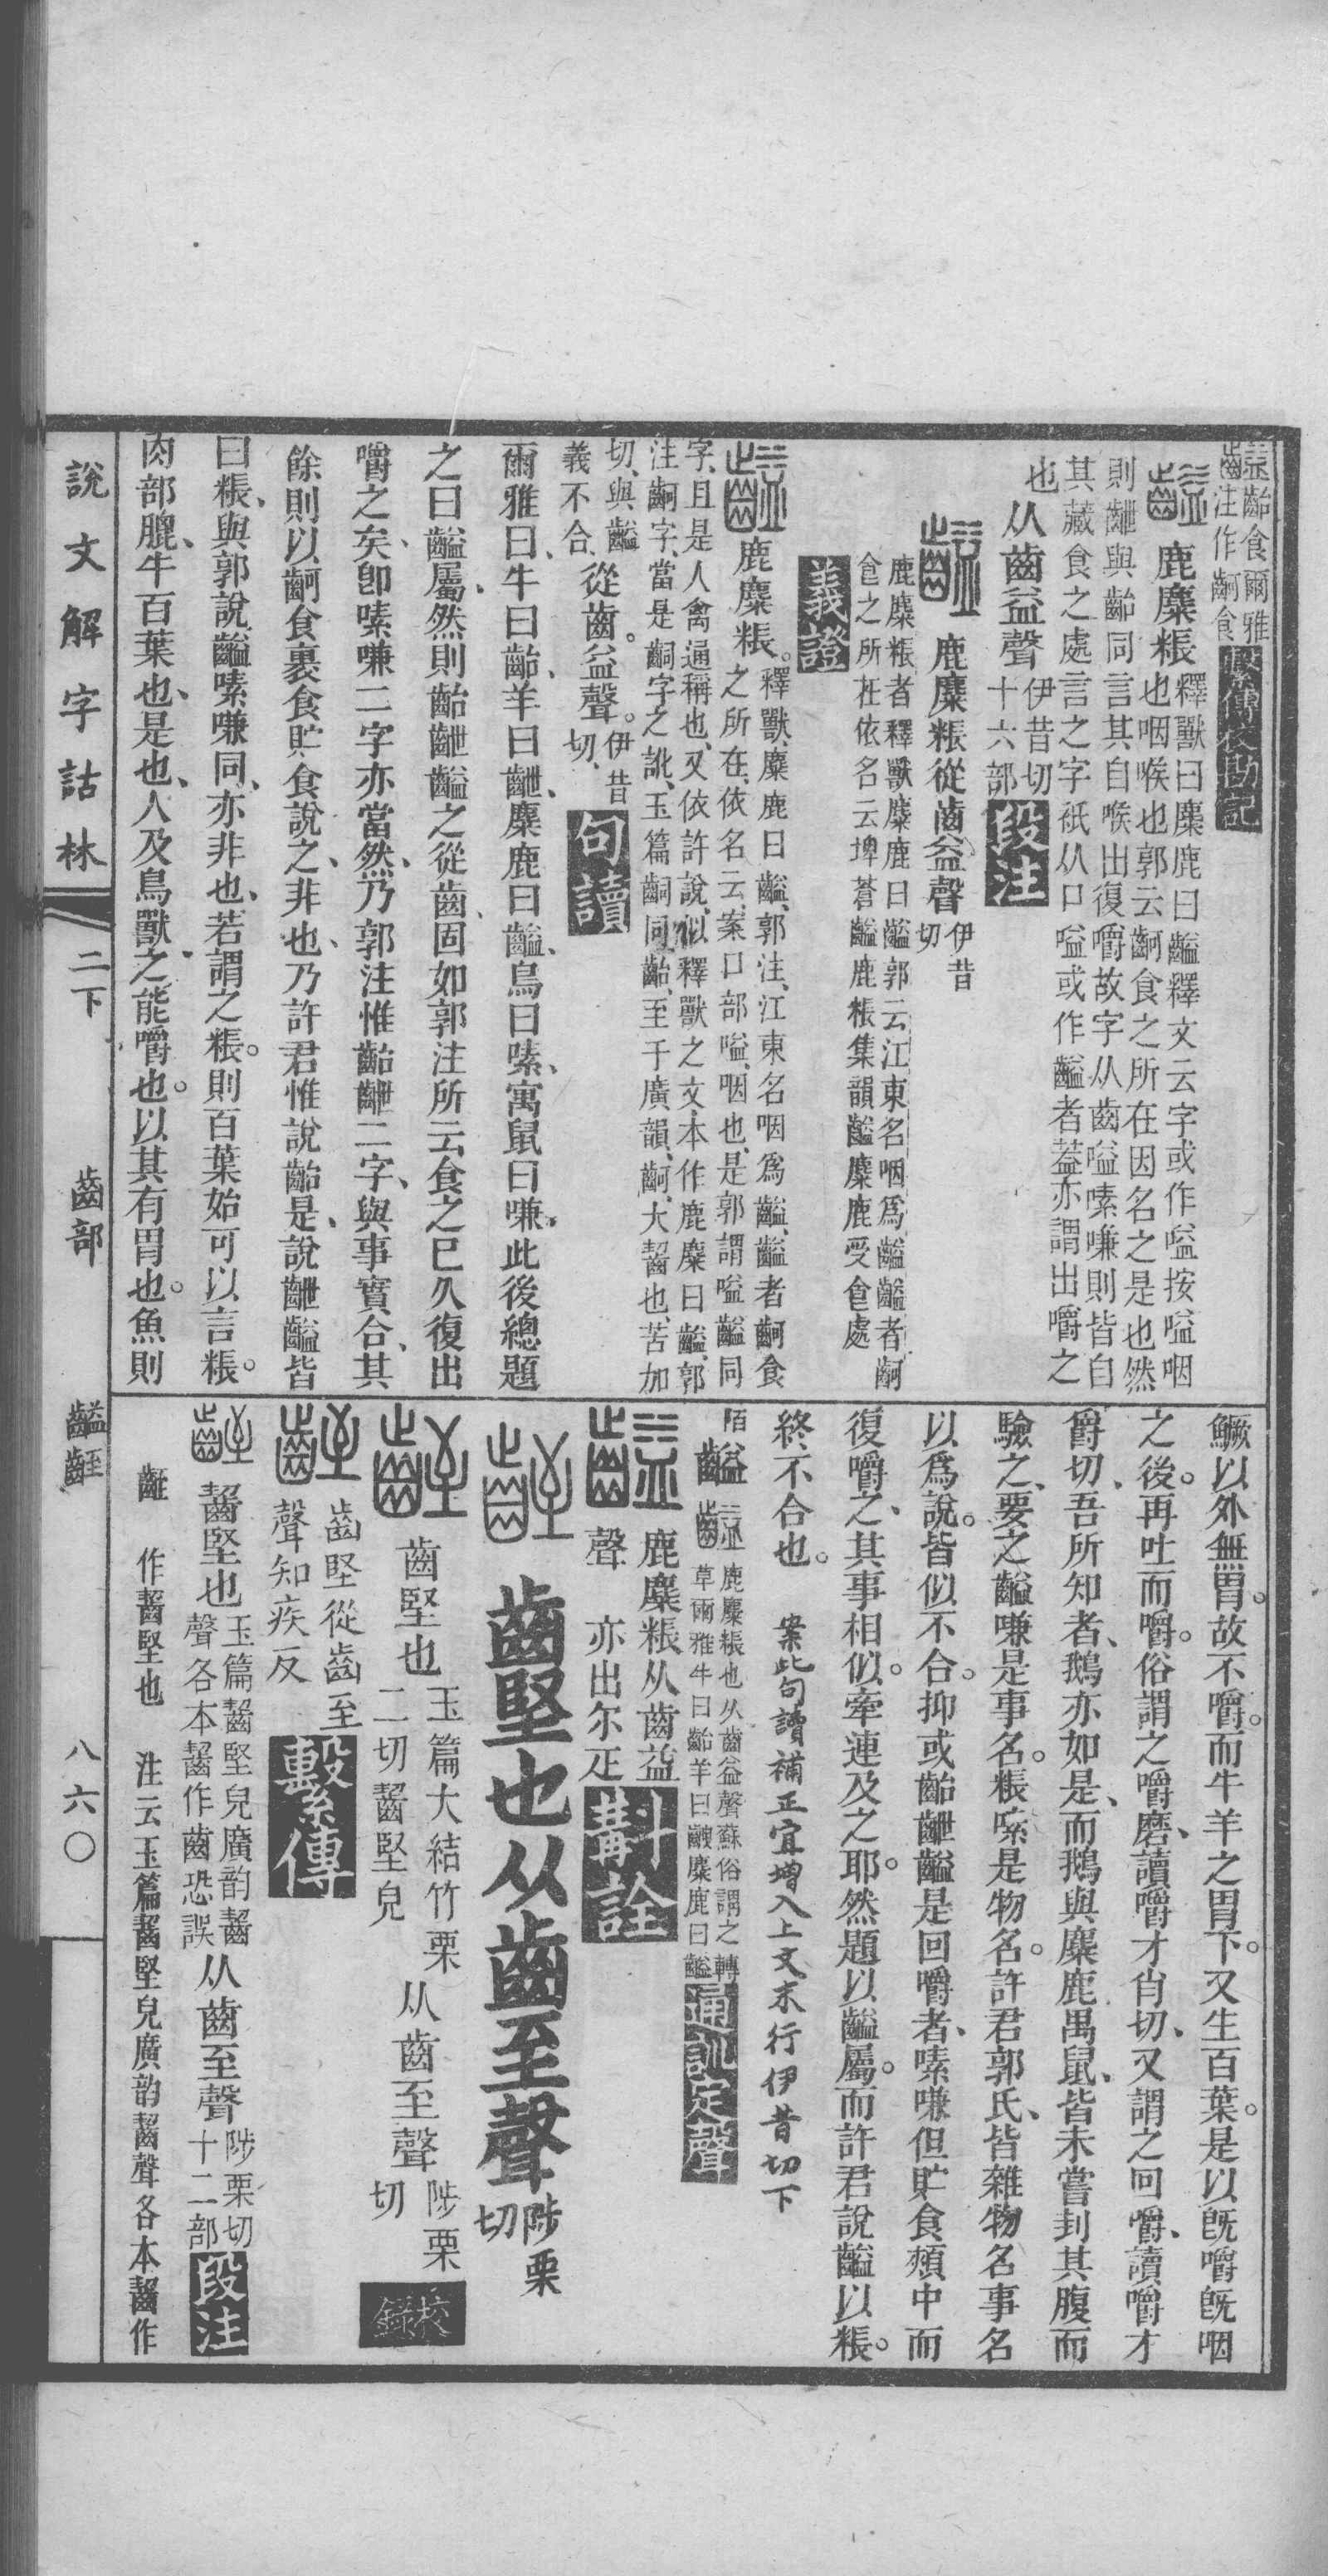 齝食爾雅
注作齝食
繫傳校勘記
鹿麋粻也
釋獸曰麋鹿曰齸釋文云字或作嗌按嗌咽
咽喉也郭云齝食之所在因名之是也然
則齥與齝同言其自喉出復嚼故字从齒嗌嗉嗛則皆自
其藏食之處言之字祇从口嗌或作齸者葢亦謂出嚼之
也从齒益聲
伊昔切
十六部
段注
鹿麋粻從齒益聲
伊昔
切
鹿麋粻者釋獸麋鹿曰齸郭云江東名咽爲齸齸者齝
食之所在依名云埤蒼齸鹿粻集韻齸麋鹿受食處
義證
鹿麋粻。
釋獸、麋鹿曰齸、郭注、江東名咽爲齸、齸者齝食
之所在、依名云、案口部嗌、咽也、是郭謂嗌齸同
字、且是人禽通稱也、又依許說、似釋獸之文本作鹿麋曰齸、郭
注齝字、當是齝字之訛、玉篇齝同齝、至于廣韻、齝、大齧也、苦加
切、與齸
義不合、
從齒。益聲。
伊昔
切、
句讀
爾雅曰、牛曰齝、羊曰齥、麋鹿曰齸、鳥曰嗉、寓鼠曰嗛、此後總題
之曰齸屬、然則齝齥齸之從齒、固如郭注所云食之已久復出
嚼之矣、卽嗉嗛二字亦當然、乃郭注惟齝齥二字、與事實合、其
餘則以齝食裹食貯食說之、非也、乃許君惟說齝是、說齥齸皆
曰粻、與郭說齸嗉嗛同、亦非也、若謂之粻。則百葉始可以言粻。
肉部膍、牛百葉也、是也、人及鳥獸之能嚼也。以其有胃也。魚則
說文解字詁林
二下
齒部
齸䶡
八六〇
鱖以外無胃。故不嚼。而牛羊之胃下。又生百葉。是以旣嚼旣咽
之後。再吐而嚼。俗謂之嚼磨、讀嚼才肖切、又謂之回嚼、讀嚼才
爵切、吾所知者、鵝亦如是、而鵝與麋鹿禺鼠、皆未嘗刲其腹而
驗之、要之齸嗛是事名。粻嗉是物名。許君郭氏、皆雜物名事名
以爲說。皆似不合。抑或齝齥齸是回嚼者、嗉嗛但貯食頰中而
復嚼之、其事相似。牽連及之耶。然題以齸屬。而許君說齸以粻。
終不合也。
案此句讀補正宜增入上文末行伊昔切下
陌齸
鹿麋粻也从齒益聲蘇俗謂之轉
草爾雅牛曰齝羊曰齥麋鹿曰齸
通訓定聲
鹿麋粻从齒益
聲 亦出尔疋
斠詮
齒堅也从齒至聲
陟栗
切
齒堅也
玉篇大結竹栗
二切齧堅皃
从齒至聲
陟栗
切
校錄
齒堅從齒至
聲知疾反
繫傳
齧堅也
玉篇齧堅皃廣韵齧
聲各本齧作齒恐誤
从齒至聲
陟栗切
十二部
段注
䶡 作齧堅也 注云玉篇齧堅皃廣韵齧聲各本齧作